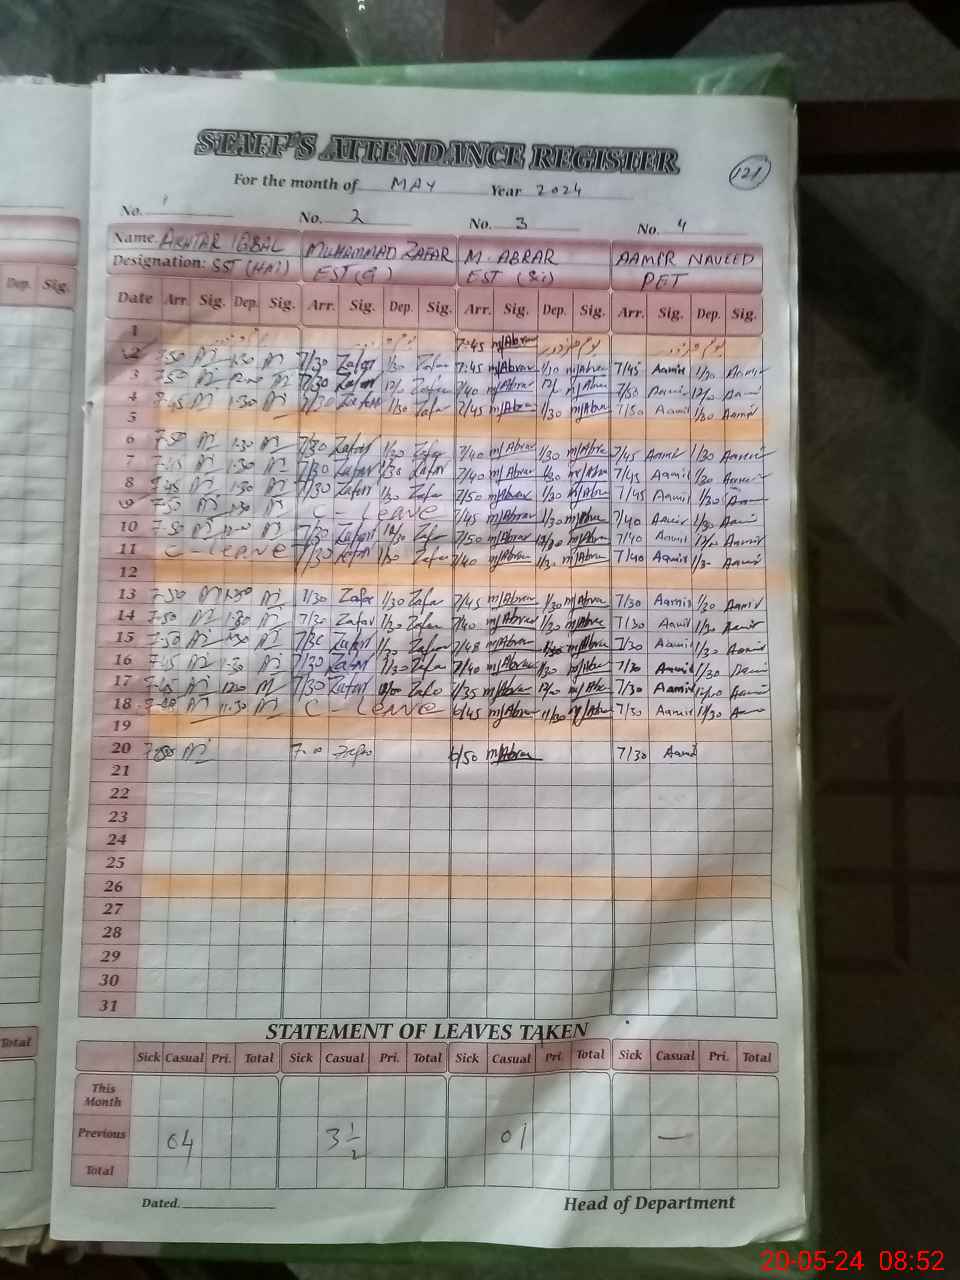 STAFF'S ATTENDANCE REGISTER
121
For the month of MAY Year 2024
No. 1 No. 2 No. 3 No. 4
Name. AKHTAR IQBAL MUHAMMAD ZAFAR M. ABRAR AAMIR NAVEED
Designation: SST (HM) EST (G) EST (Sci) PET
Dep. Sig.
Date Arr. Sig. Dep. Sig. Arr. Sig. Dep. Sig. Arr. Sig. Dep. Sig. Arr. Sig. Dep. Sig.
1 7:45 m/Abrar یوم مزدور
2 7:50 1:30 7/30 Zafar 1/30 Zafar 7:45 m/Abrar 1/30 m/Abrar 7/45 Aamir 1/30 Aamir
3 7:50 7/30 Zafar 12/0 Zafar 7/40 m/Abrar 12/0 m/Abrar 7/50 Aamir 12/0 Aamir
4 7:45 1:30 7/30 Zafar 1/30 Zafar 7/45 m/Abrar 1/30 m/Abrar 7/50 Aamir 1/30 Aamir
5
6 7:50 1:30 7/30 Zafar 1/30 Zafar 7/40 m/Abrar 1/30 m/Abrar 7/45 Aamir 1/30 Aamir
7 7:45 1:30 7/30 Zafar 1/30 Zafar 7/40 m/Abrar 1/30 m/Abrar 7/45 Aamir 1/30 Aamir
8 7:45 1:30 7/30 Zafar 1/30 Zafar 7/50 m/Abrar 1/30 m/Abrar 7/45 Aamir 1/30 Aamir
9 7:50 1:30 C-LEAVE 7/45 m/Abrar 1/30 m/Abrar 7/40 Aamir 1/30 Aamir
10 7:50 7/30 Zafar Zafar 7/50 m/Abrar m/Abrar 7/40 Aamir Aamir
11 C-LEAVE 7/30 Zafar 1/30 Zafar 7/40 m/Abrar 1/30 m/Abrar 7/40 Aamir 1/30 Aamir
12
13 7:50 7/30 Zafar 1/30 Zafar 7/45 m/Abrar 1/30 m/Abrar 7/30 Aamir 1/30 Aamir
14 7:50 1:30 7/30 Zafar 1/30 Zafar 7/40 m/Abrar 1/30 m/Abrar 7/30 Aamir 1/30 Aamir
15 7:50 1:30 7/30 Zafar 1/30 Zafar 7/48 m/Abrar m/Abrar 7/30 Aamir 1/30 Aamir
16 7:45 1:30 7/30 Zafar 1/30 Zafar 7/40 m/Abrar 1/30 m/Abrar 7/30 Aamir 1/30 Aamir
17 7:45 7/30 Zafar Zafar 7/35 m/Abrar 12/0 m/Abrar 7/30 Aamir Aamir
18 11:30 C-LEAVE 6/45 m/Abrar 11/30 m/Abrar 7/30 Aamir 11/30 Aamir
19
20 7:00 Zafar 6/50 m/Abrar 7/30 Aamir
21
22
23
24
25
26
27
28
29
30
31
STATEMENT OF LEAVES TAKEN
Total Sick Casual Pri. Total Sick Casual Pri. Total Sick Casual Pri. Total Sick Casual Pri. Total
This Month
Previous 04 3 1/2 01 —
Total
Dated. Head of Department
20-05-24 08:52